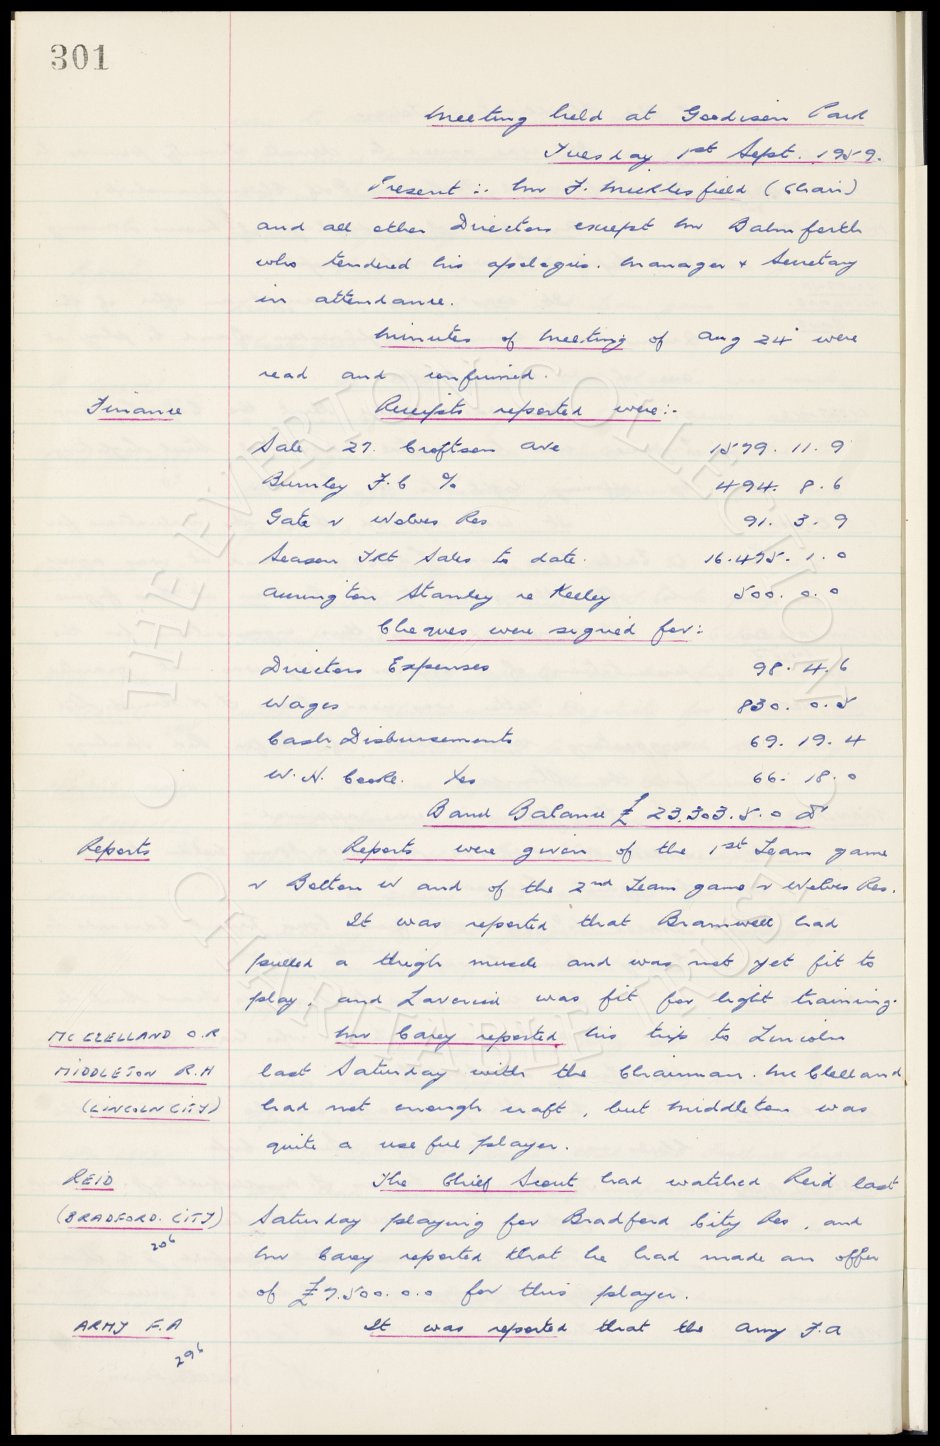 301
Meeting held at Goodison Park
Tuesday 1st Sept. 1959.
Present :- Mr F. Micklesfield (Chair)
and all other Directors except Mr Balmforth
who tendered his apologies. Manager & Secretary
in attendance.
Minutes of Meeting of Aug 24 were
read and confirmed.
Finance Receipts reported were:-
Sale 27. Croftson Ave 1579. 11. 9
Burnley F.C % 494. 8. 6
Gate v Wolves Res 91. 3. 9
Season Tkt Sales to date. 16.475. 1. 0
Accrington Stanley re Keeley 500. 0. 0
Cheques were signed for:
Directors Expenses 98. 4. 6
Wages 830. 0. 5
Cash Disbursements 69. 19. 4
W. H. Cooke. 66. 18. 0
Bank Balance £23.303. 5. 0
Reports Reports were given of the 1st Team game
v Bolton W and of the 2nd Team game v Wolves Res.
It was reported that Bramwell had
pulled a thigh muscle and was not yet fit to
play, and Laverick was fit for light training.
MC CLELLAND O.R Mr Carey reported his trip to Lincoln
MIDDLETON R.H last Saturday with the Chairman. McClelland
(LINCOLN CITY) had not enough craft, but Middleton was
quite a useful player.
REID The Chief Scout had watched Reid last
(BRADFORD. CITY) Saturday playing for Bradford City Res, and
206 Mr Carey reported that he had made an offer
of £7.500. 0. 0 for this player.
ARMY F.A It was reported that the Army F.A
296
THE EVERTON COLLECTION
CHARITABLE TRUST